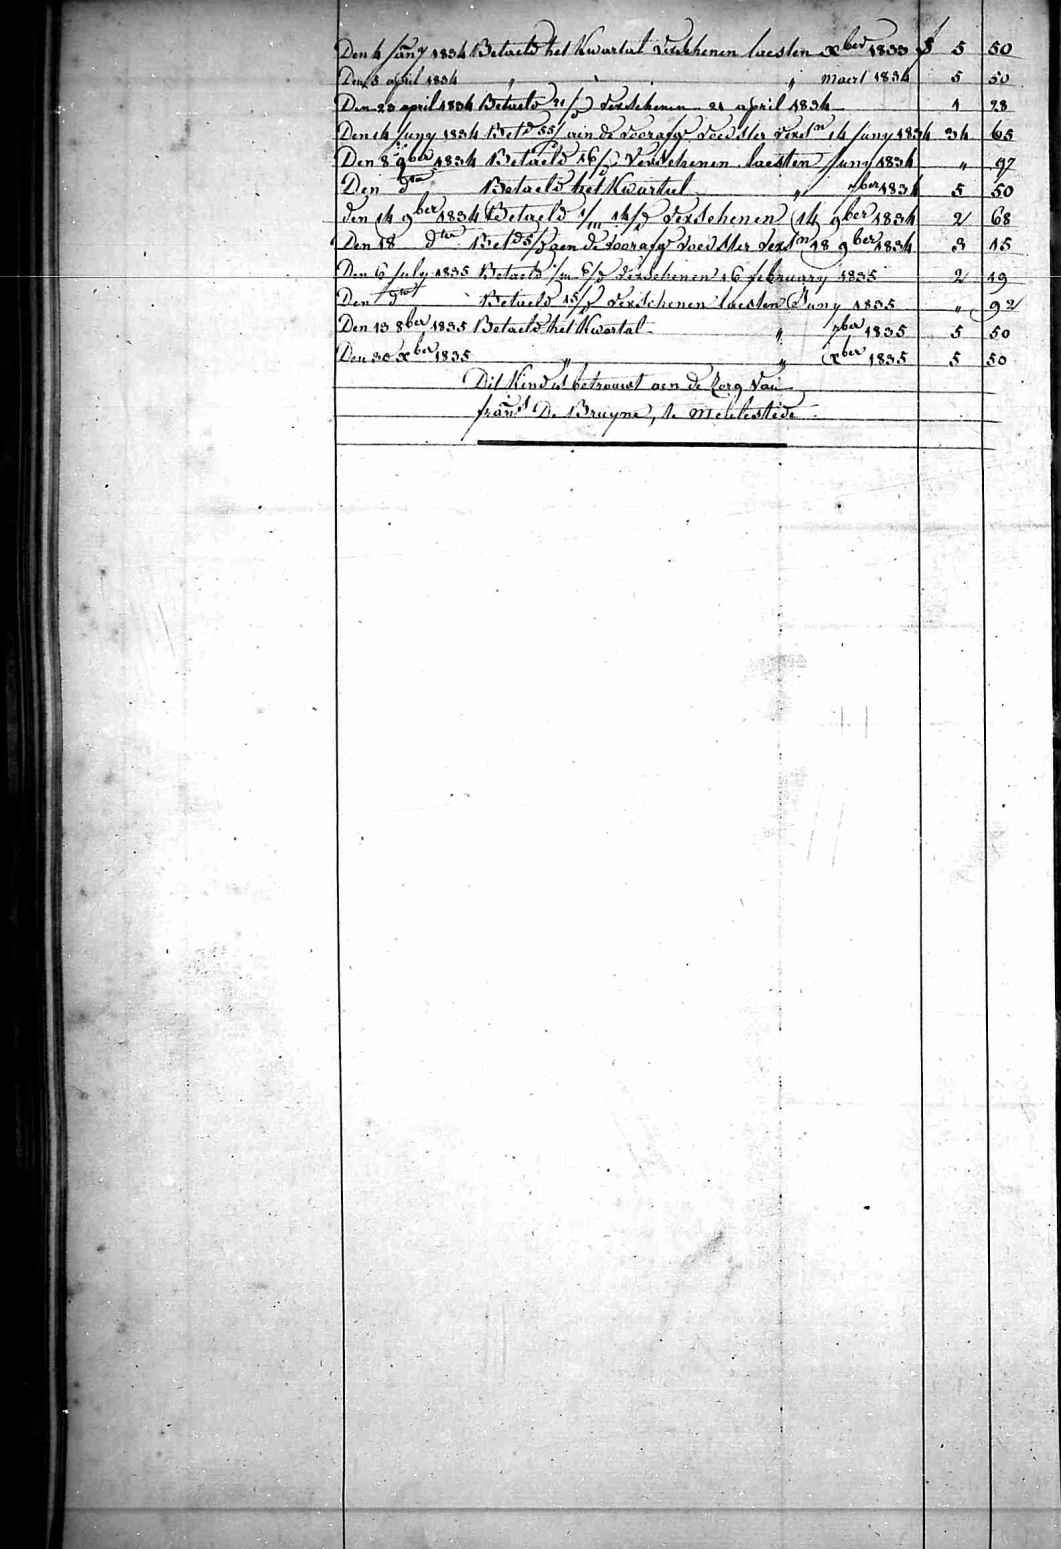 Den 4 Jany 1834 Betaeld het Kwartal verschenen laesten Xber 1833 f 5 50
Den 3 april 1834 " " " maert 1834 5 50
Den 23 april 1834 Betaeld 21/ verschenen 21 april 1834 1 28
Den 14 Juny 1834 Betd 55/ aen de voorafg voedster versn 14 Juny 1834 34 65
Den 8 9ber 1834 Betaeld 16/ Verschenen laesten Juny 1834 " 97
Den dto Betaeld het Kwartal " 7ber 1834 5 50
den 14 9ber 1834 Betaeld 1/m 14/ verschenen 14 9ber 1834 2 68
Den 18 dto Betd 5/ aen de voorafg voedster versn 18 9ber 1834 3 15
Den 6 July 1835 Betaeld 1/m 6/ verschenen 16 february 1835 2 19
Den dto Betaeld 15/ verschenen laesten Juny 1835 " 92
Den 13 8ber 1835 Betaeld het Kwartal " 7ber 1835 5 50
Den 30 Xber 1835 " " Xber 1835 5 50
Dit Kind is betrouwt aen de Zorg van
frans De Bruyne, te Meulestede